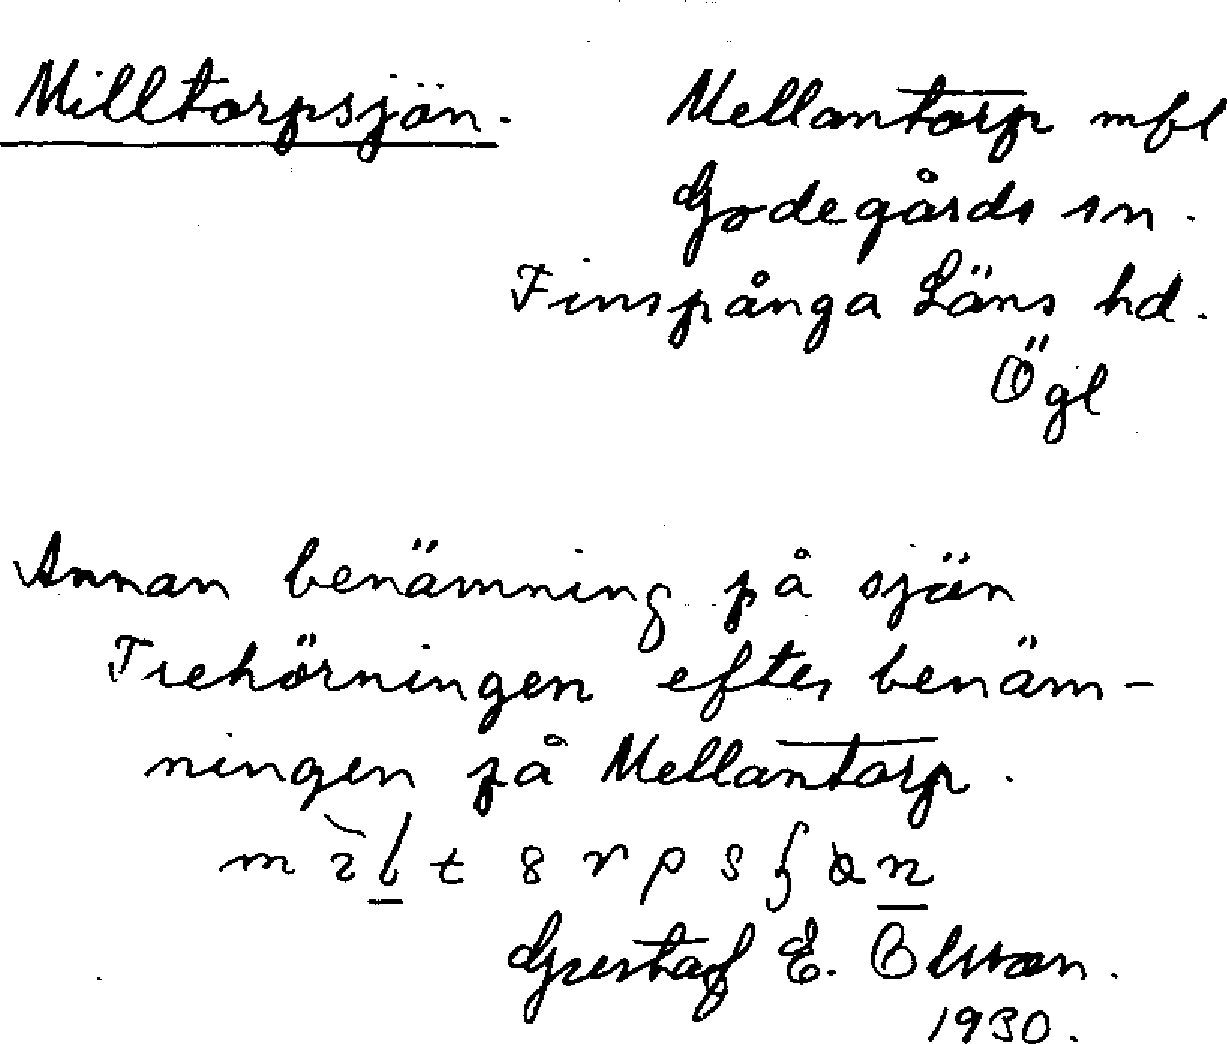 Milltorpsjön. Mellantorp mfl
Godegårds sn.
Finspånga Läns hd.
Ögl
Annan benämning på sjön
Trehörningen efter benäm-
ningen på Mellantorp.
Gustaf E. Olsson.
1930.